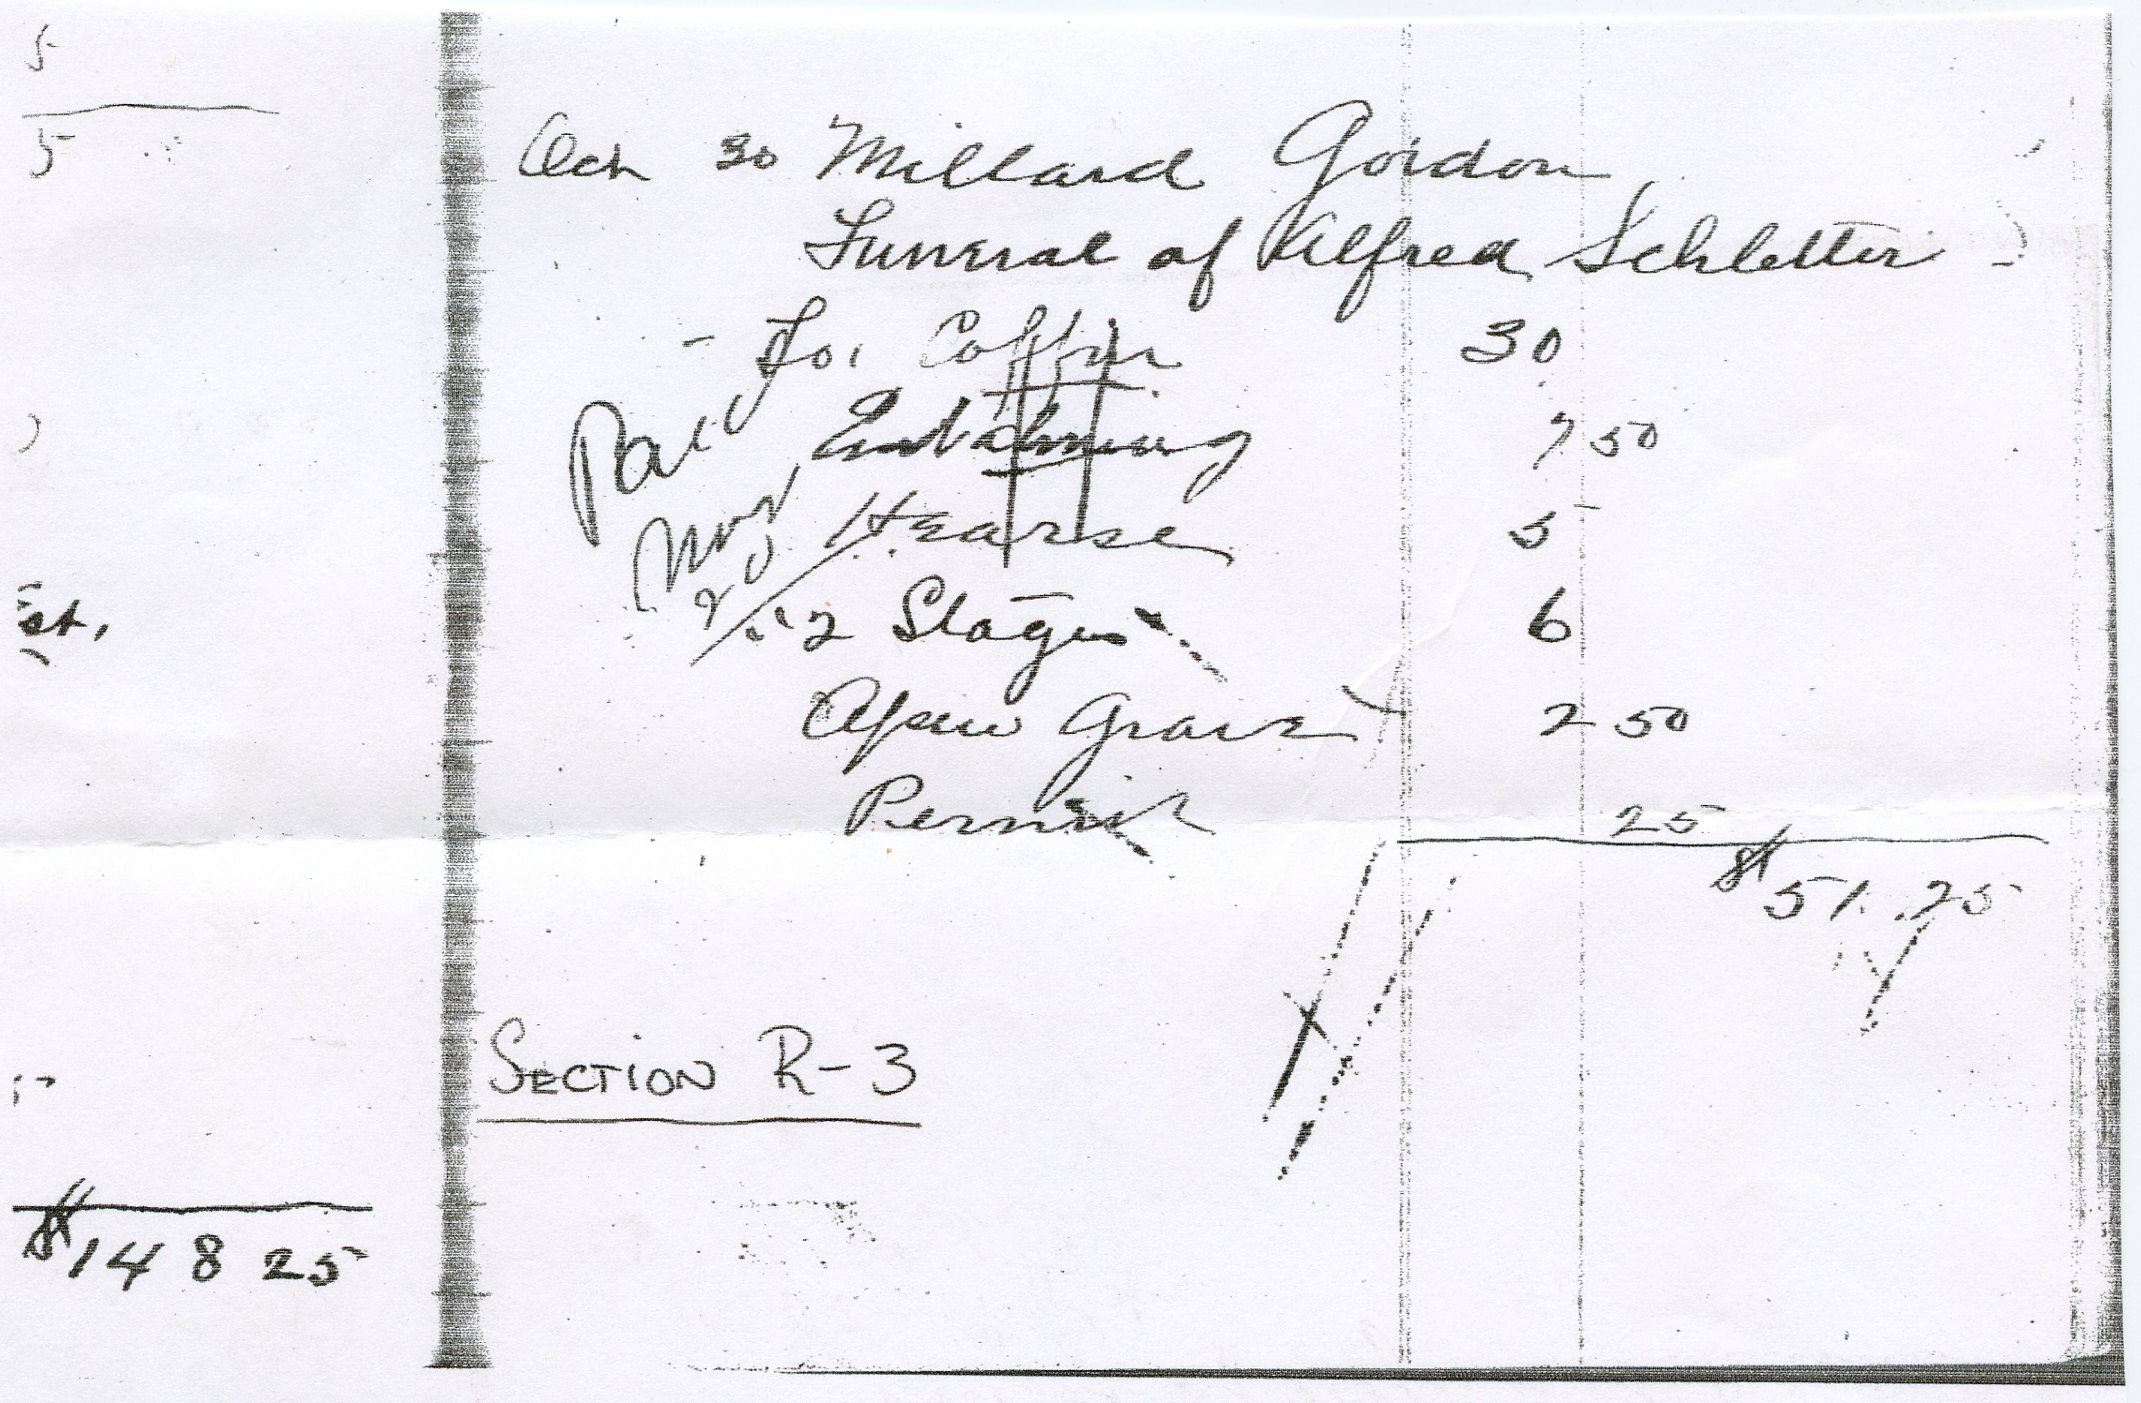 5
5
st.
$148 25
Oct 30 Millard Gordon
Funeral of Alfred Schletter
For Coffin 30
Embalming 7 50
Hearse 5
2 Stages 6
Open Grave 2 50
Permit 25
$51.25
Paid
Nov
20
SECTION R-3